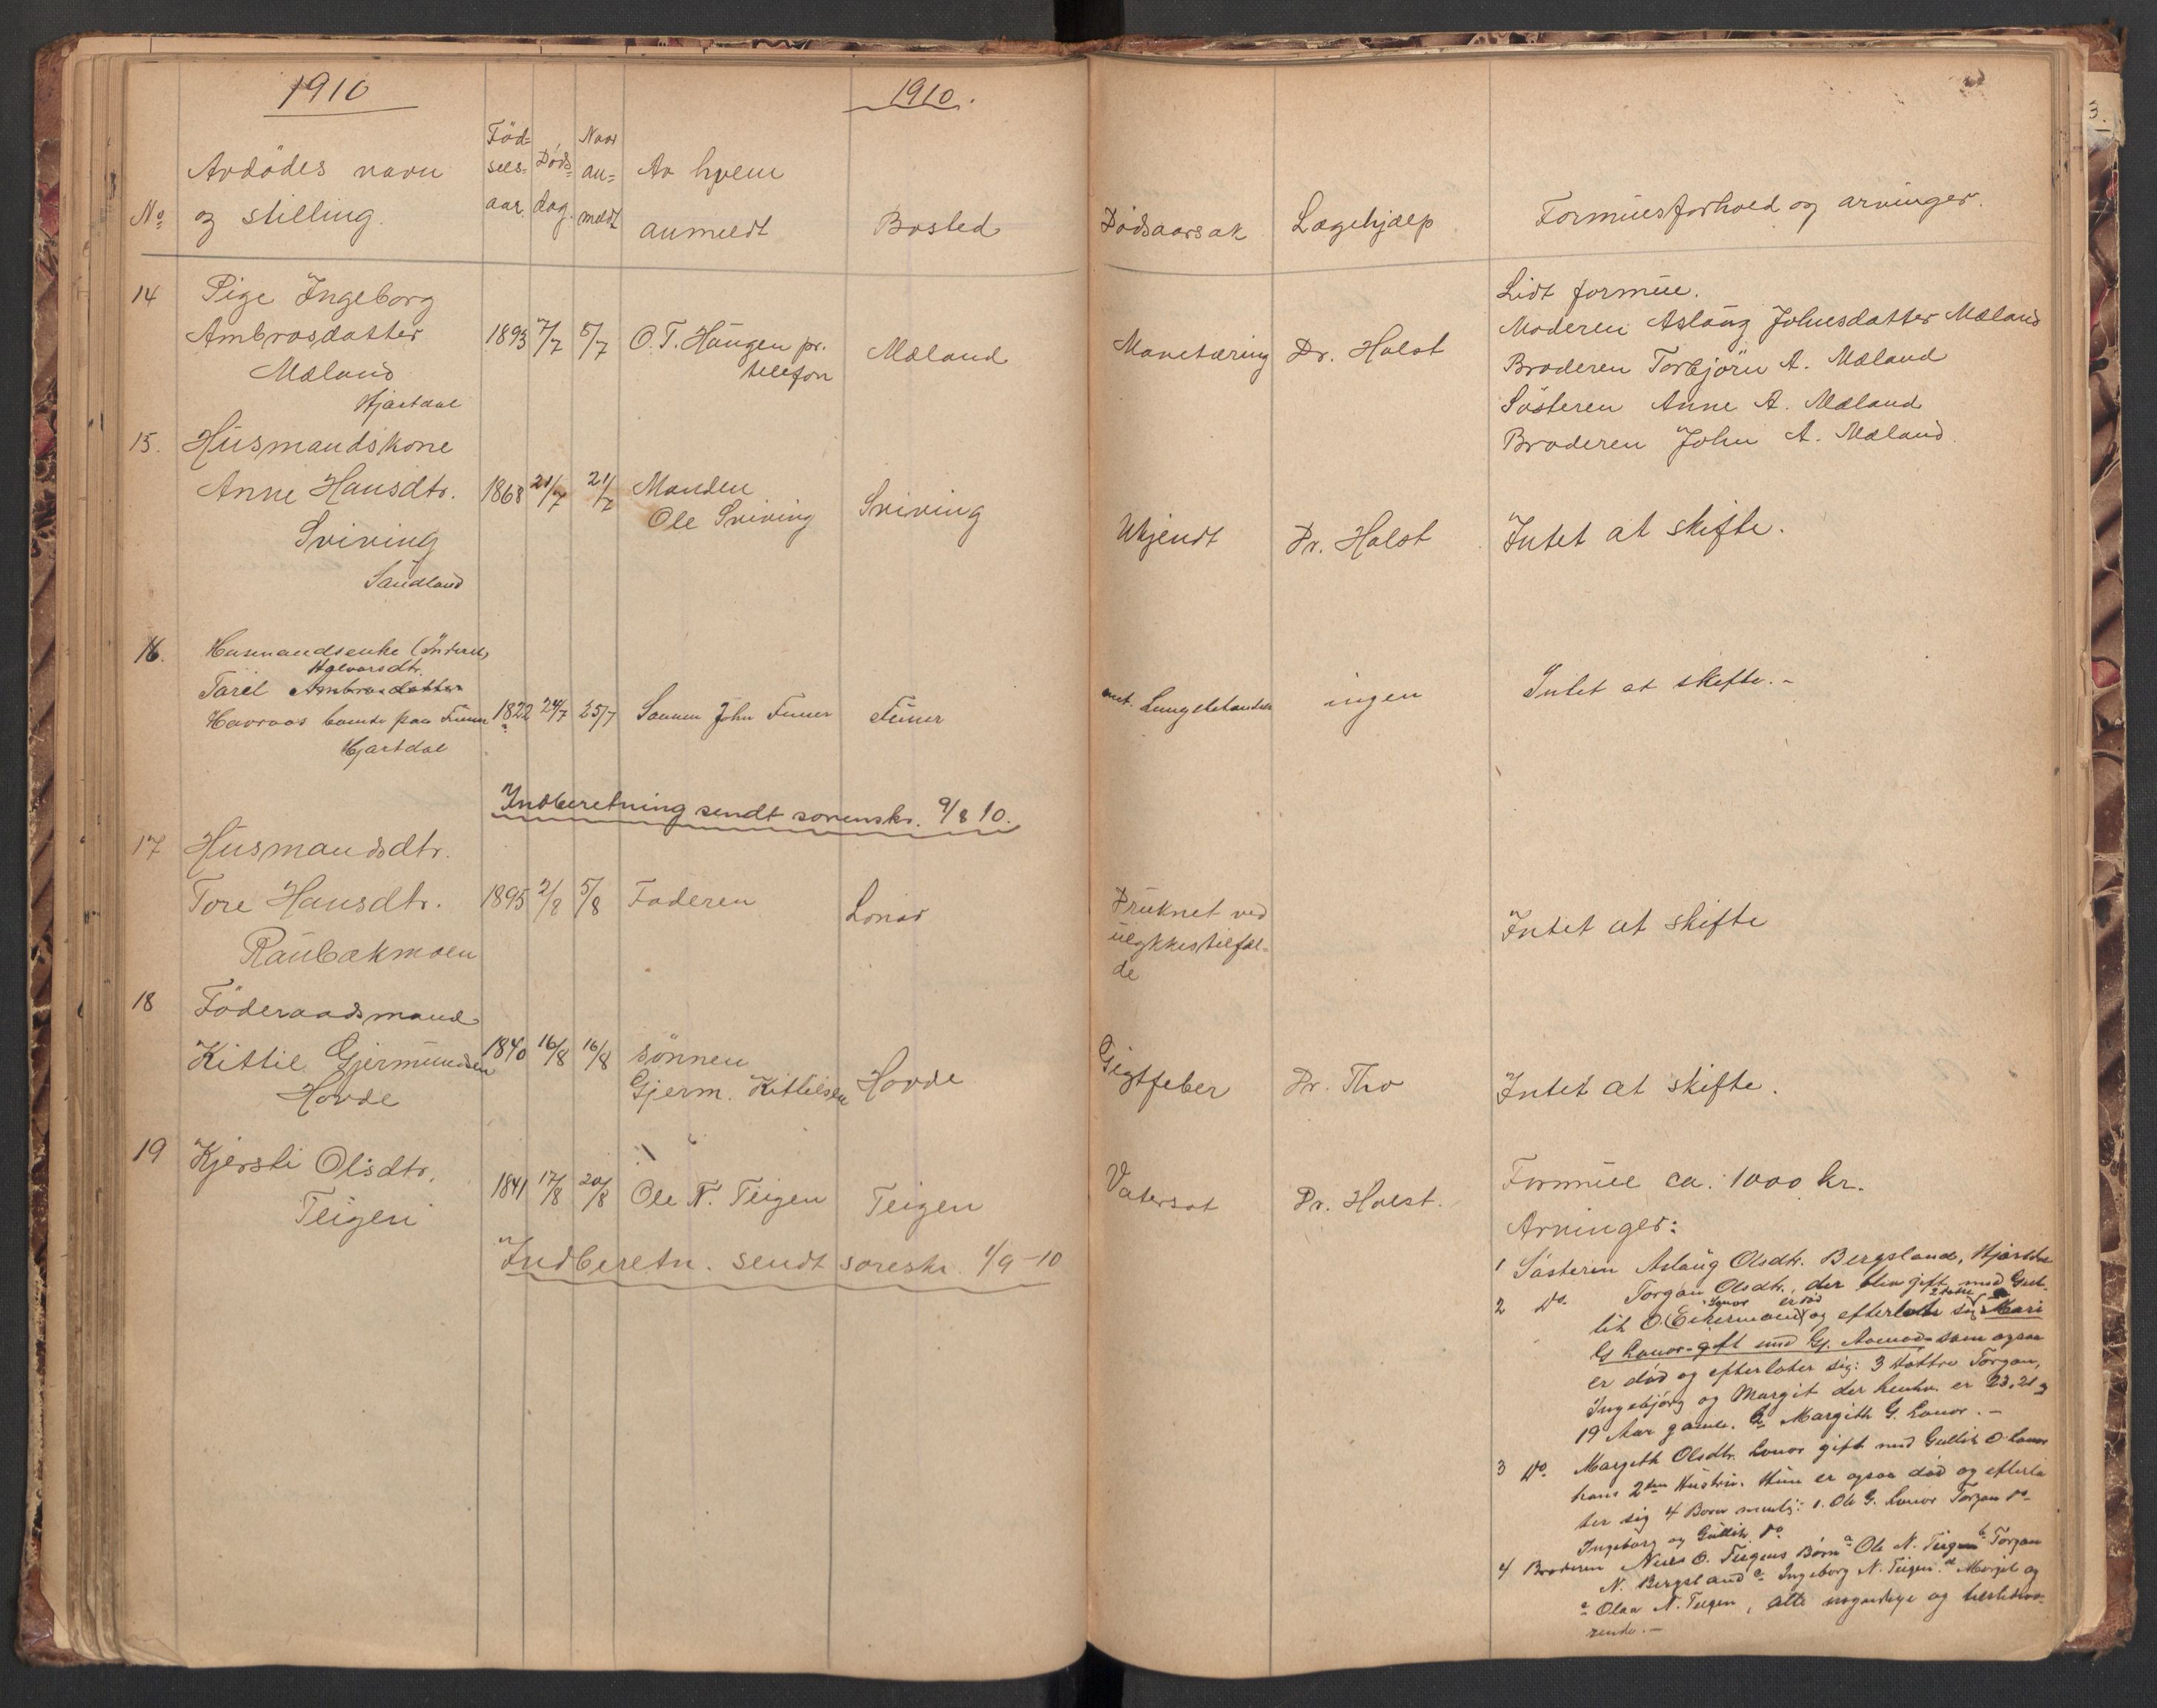 1910
1910.
No Avdødes navn og stilling.
Fødselsaar.
Dødsdag.
Naar anmeldt
Av hvem anmeldt
Bosted
Dødsaarsak
Lægehjælp
Formuesforhold og arvinger.
14 Pige Ingeborg
Ambrosdatter
Mæland
Hjartdal
1893 7/7 5/7 O. T. Haugen pr.
telefon
Mæland
Mavetæring Dr. Holst
Lidt formue.
Moderen Aslaug Johnsdatter Mæland
Broderen Torbjörn A. Mæland
Søsteren Anne A. Mæland
Broderen John A. Mæland
15. Husmandskone
Anne Hansdtr.
Sviving
Sauland
1868 21/7 21/7 Manden
Ole Sviving
Sviving
Ukjendt Dr. Holst Intet at skifte.
16. Husmandsenke
Halvorsdtr.
Taril Ambrosdatter
Havraas boende paa Funer
Hjartdal
1822 24/7 25/7 Sønnen John Funer Funer
ant. Lungebetændelse ingen Intet at skifte. -
Indberetning sendt sorenskr. 9/8 10.
17 Husmandsdtr.
Tore Hansdtr.
Raubækmoen
1895 2/8 5/8 Faderen Lonar
Druknet ved
ulykkestilfæl-
de
Intet at skifte
18 Föderaadsmand
Kittil Gjermundsen
Hovde
1840 16/8 16/8 sönnen
Gjerm. Kittilsen Hovde
Gigtfeber Dr. Tho Intet at skifte.
19 Kjersti Olsdtr.
Teigen
1841 17/8 20/8 Ole N. Teigen Teigen
Vatersot Dr. Holst.
Indberetn. sendt soreskr. 1/9-10
Formue ca. 1000 kr.
Arvinger:
1 Søsteren Aslaug Olsdtr. Bergsland, Hjartdal
2 do. Torgun Olsdtr., der blev gift med Gul-
Lonar er død 2 døtre
lik O. Eikermoen og efterlot sig a Mari
G Lonar gift med Gj. Aamod som ogsaa
er død og efterlater sig: 3 døttre Torgun,
Ingebjörg og Margit der henhv. er 23, 21 og
19 Aar gamle. b Margith G. Lonar. -
3 do. Margith Olsdtr. Lonar gift med Gullik O Lonar
hans 2den Hustru. Hun er ogsaa død og efterla
ter sig 4 Børn nemlig: 1. Ole G. Lonar Torgun do
Ingeborg og Gullik do
4 Broderen Niels O. Teigens Børn a Ole N. Teigen b Torgun
N. Bergsland c Ingeborg N. Teigen d Margit og
e Olav N. Teigen, alle myndige og tilstedevæ-
rende. -
3.